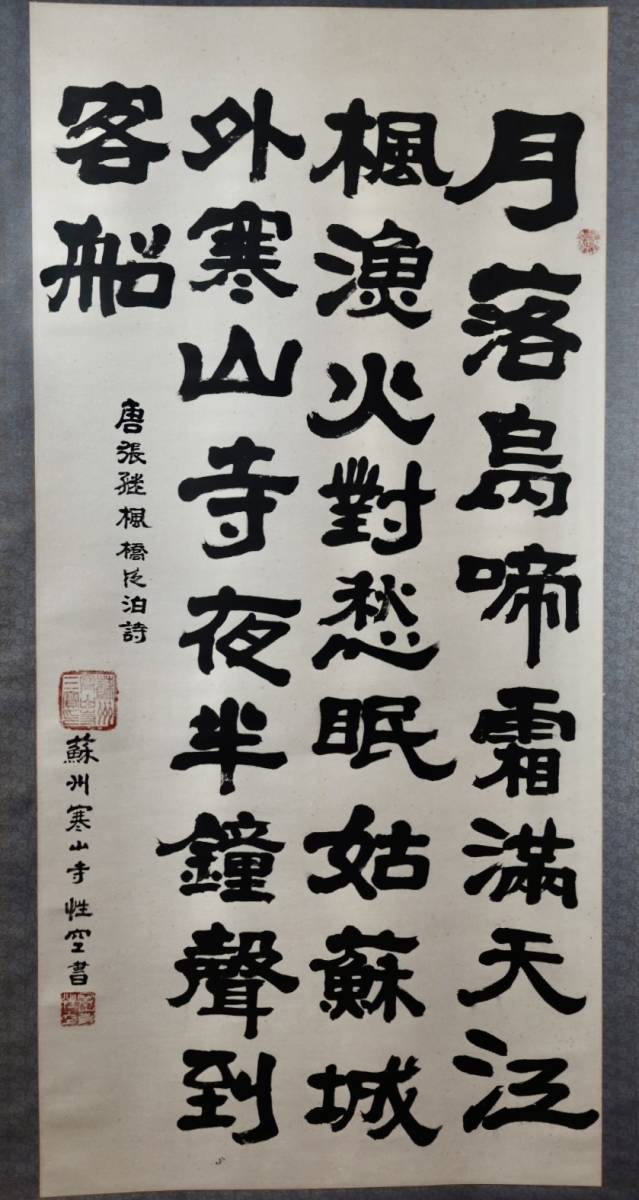 月落烏啼霜滿天江
楓漁火對愁眠姑蘇城
外寒山寺夜半鐘聲到
客船
唐張继楓橋夜泊詩
蘇州寒山寺性空書